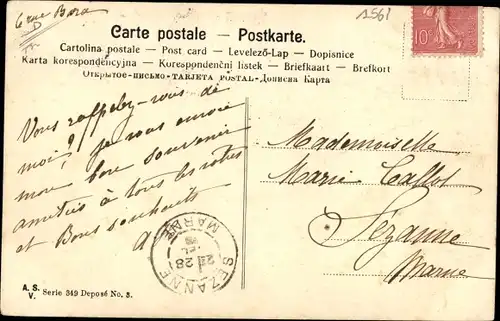 6 rue Bara
1561
Carte postale – Postkarte.
Cartolina postale — Post card — Levelező-Lap — Dopisnice
Karta korespondencyjna — Korespondenční listek — Briefkaart — Brefkort
Открытое-письмо-TARJETA POSTAL-Дописна Карта
10c
Vous rappelez-vous de
moi? je vous envoie
mon bon souvenir
amitiés à tous les votres
et Bons souhaits
A
Mademoiselle
Marie Callot
Sézanne
Marne
SEZANNE
MARNE
28
A. S.
V.
Serie 349 Deposé No. 3.